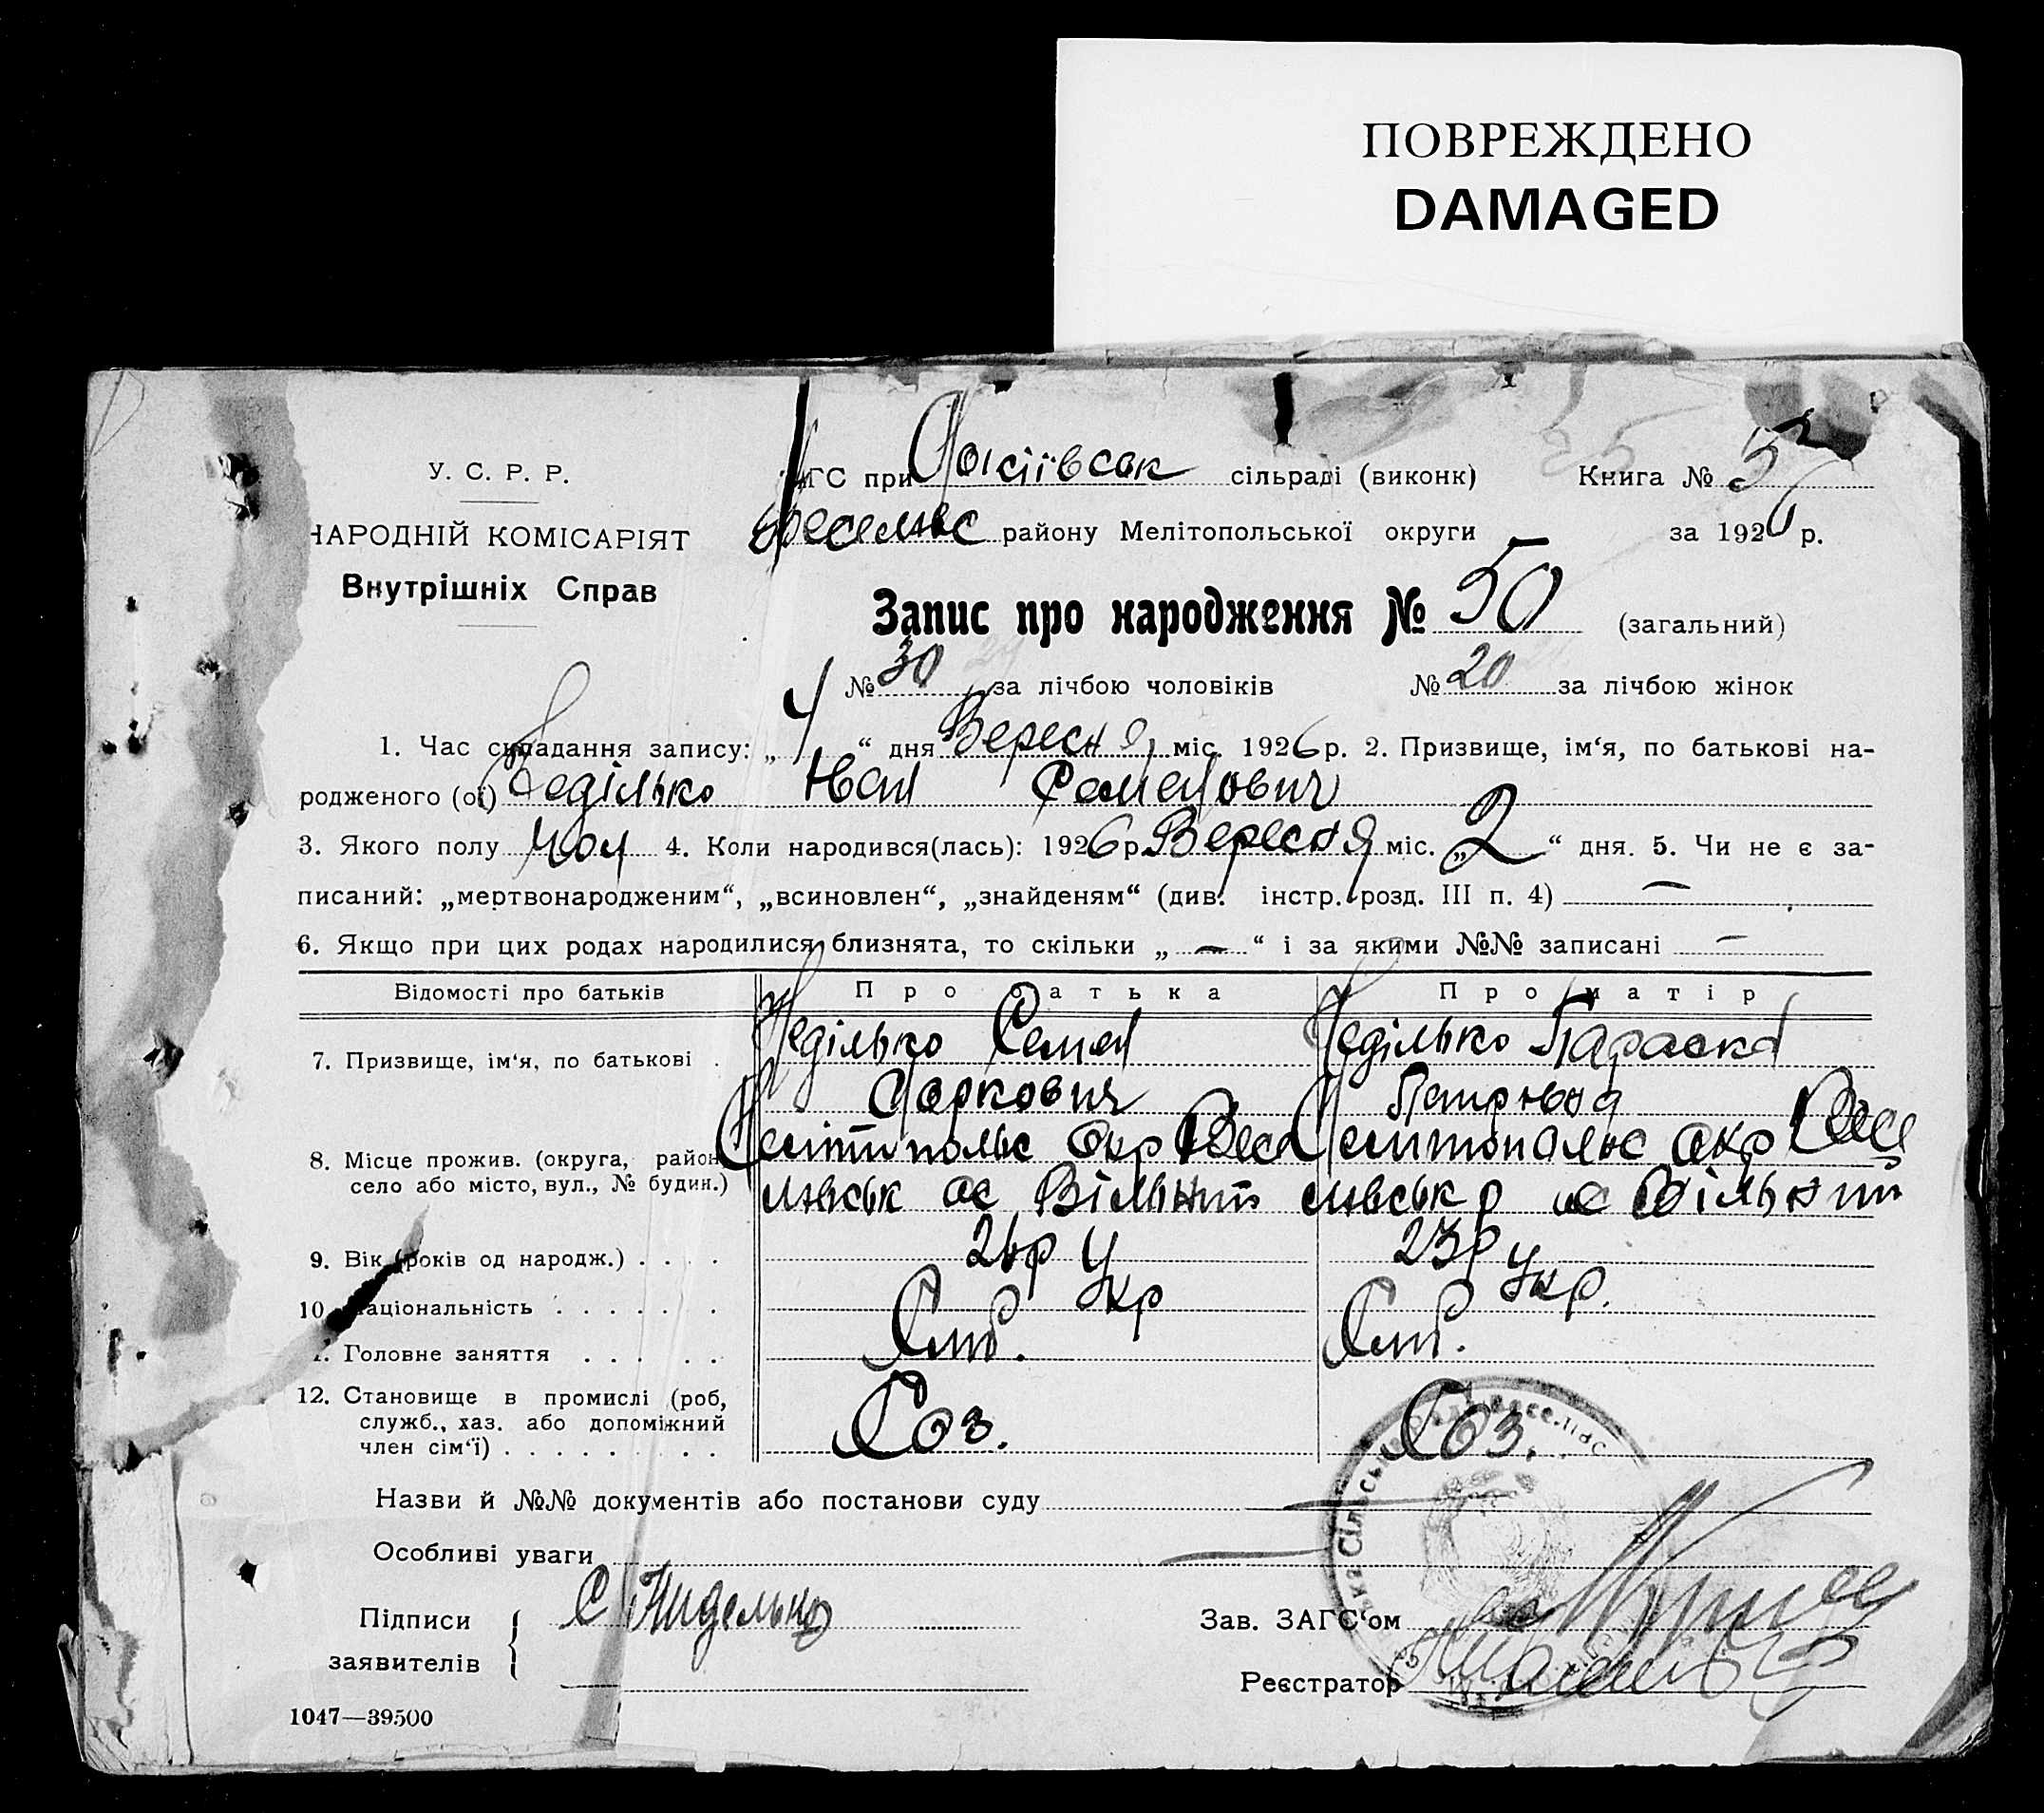 ПОВРЕЖДЕНО
DAMAGED
У. С. Р. Р.
НАРОДНІЙ КОМІСАРІЯТ
Внутрішніх Справ
ГС при сільраді (виконк) Книга № 5
Веселівс району Мелітопольської округи за 1926 р.
Запис про народження № 50 (загальний)
№ 30 за лічбою чоловіків № 20 за лічбою жінок
1. Час складання запису: „ 4 “ дня Вересня міс. 1926 р. 2. Призвище, ім‘я, по батькові на-
родженого (ої) Неділько Іван Семенович
3. Якого полу чол 4. Коли народився(лась): 1926 р. Вересня міс. „ 2 “ дня. 5. Чи не є за-
писаний: „мертвонародженим“, „всиновлен“, „знайденям“ (див. інстр. розд. III п. 4) —
6. Якщо при цих родах народилися близнята, то скільки „ — “ і за якими №№ записані —
Відомості про батьків Про батька Про матір
7. Призвище, ім‘я, по батькові . Неділько Семен Неділько Параска
Маркович
8. Місце прожив. (округа, район, село або місто, вул., № будин.) Мелітопольс окр Весе Мелитопольс окр Весе
лівськ с Вільни лівськ р с Вільни
9. Вік (років од народж.) . . . . 26 р 23 р
10. Національність . . . . . . . Укр Укр.
11. Головне заняття . . . . . Хліб. Хліб.
12. Становище в промислі (роб, служб., хаз. або допоміжний член сім‘ї) . . . . . . . . . Хоз. Хоз.
Назви й №№ документів або постанови суду —
Особливі уваги —
Підписи заявителів С Ниделько
Зав. ЗАГС‘ом
Реєстратор
1047—39500